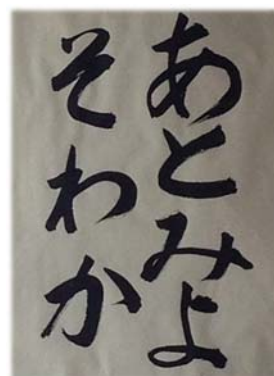 あとみよ
そわか